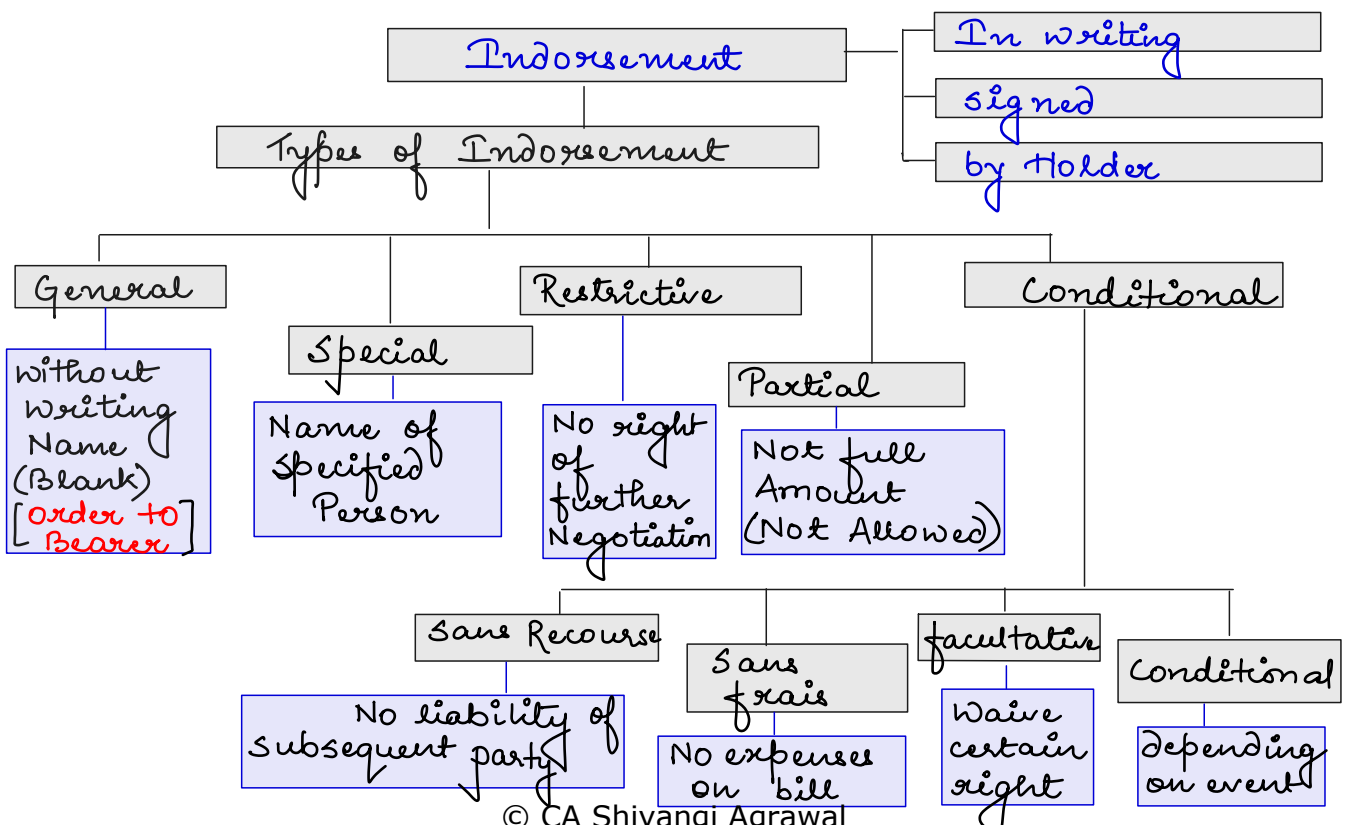 Indorsement
In writing
signed
by Holder
Types of Indorsement
General
without
writing
Name
(Blank)
[order to
Bearer]
Special
Name of
specified
Person
Restrictive
No right
of
further
Negotiation
Partial
Not full
Amount
(Not Allowed)
Conditional
Sans Recourse
No liability of
subsequent party
Sans
frais
No expenses
on bill
facultative
Waive
certain
right
Conditional
depending
on event
© CA Shivangi Agrawal